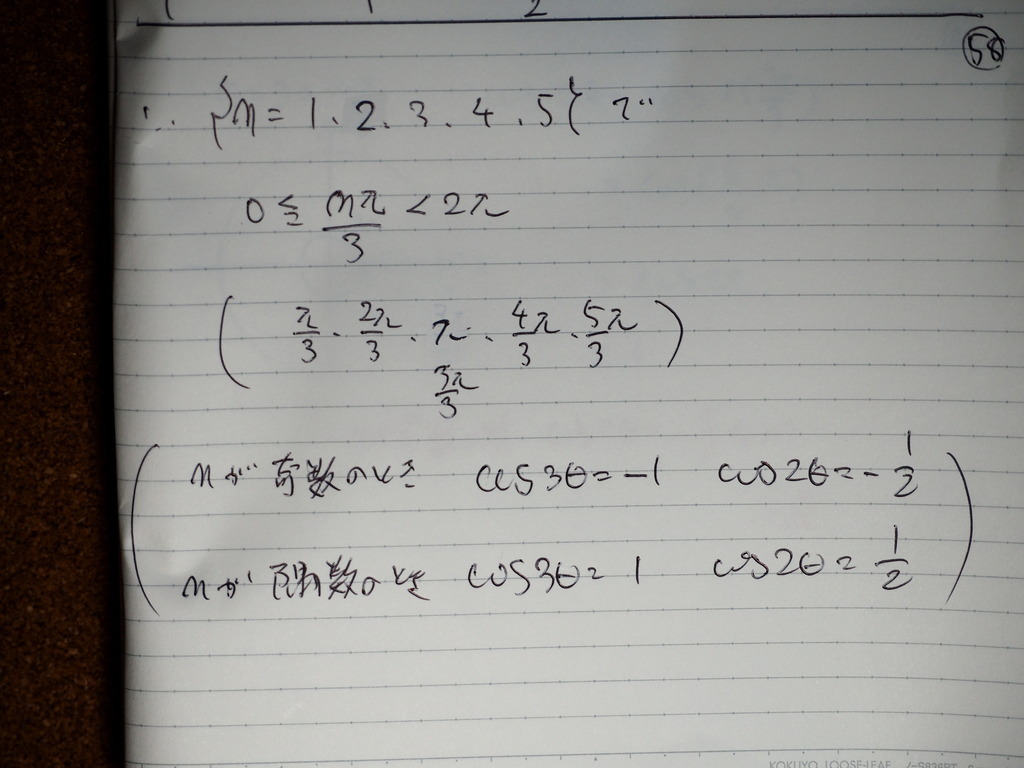 2
58
∴ {n = 1. 2. 3. 4. 5{ で
0 ≦ nπ/3 < 2π
( π/3 . 2π/3 . π . 4π/3 . 5π/3 )
3π/3
nが奇数のとき cos3θ = -1 cos2θ = - 1/2
nが偶数のとき cos3θ = 1 cos2θ = 1/2
KOKUYO LOOSE-LEAF